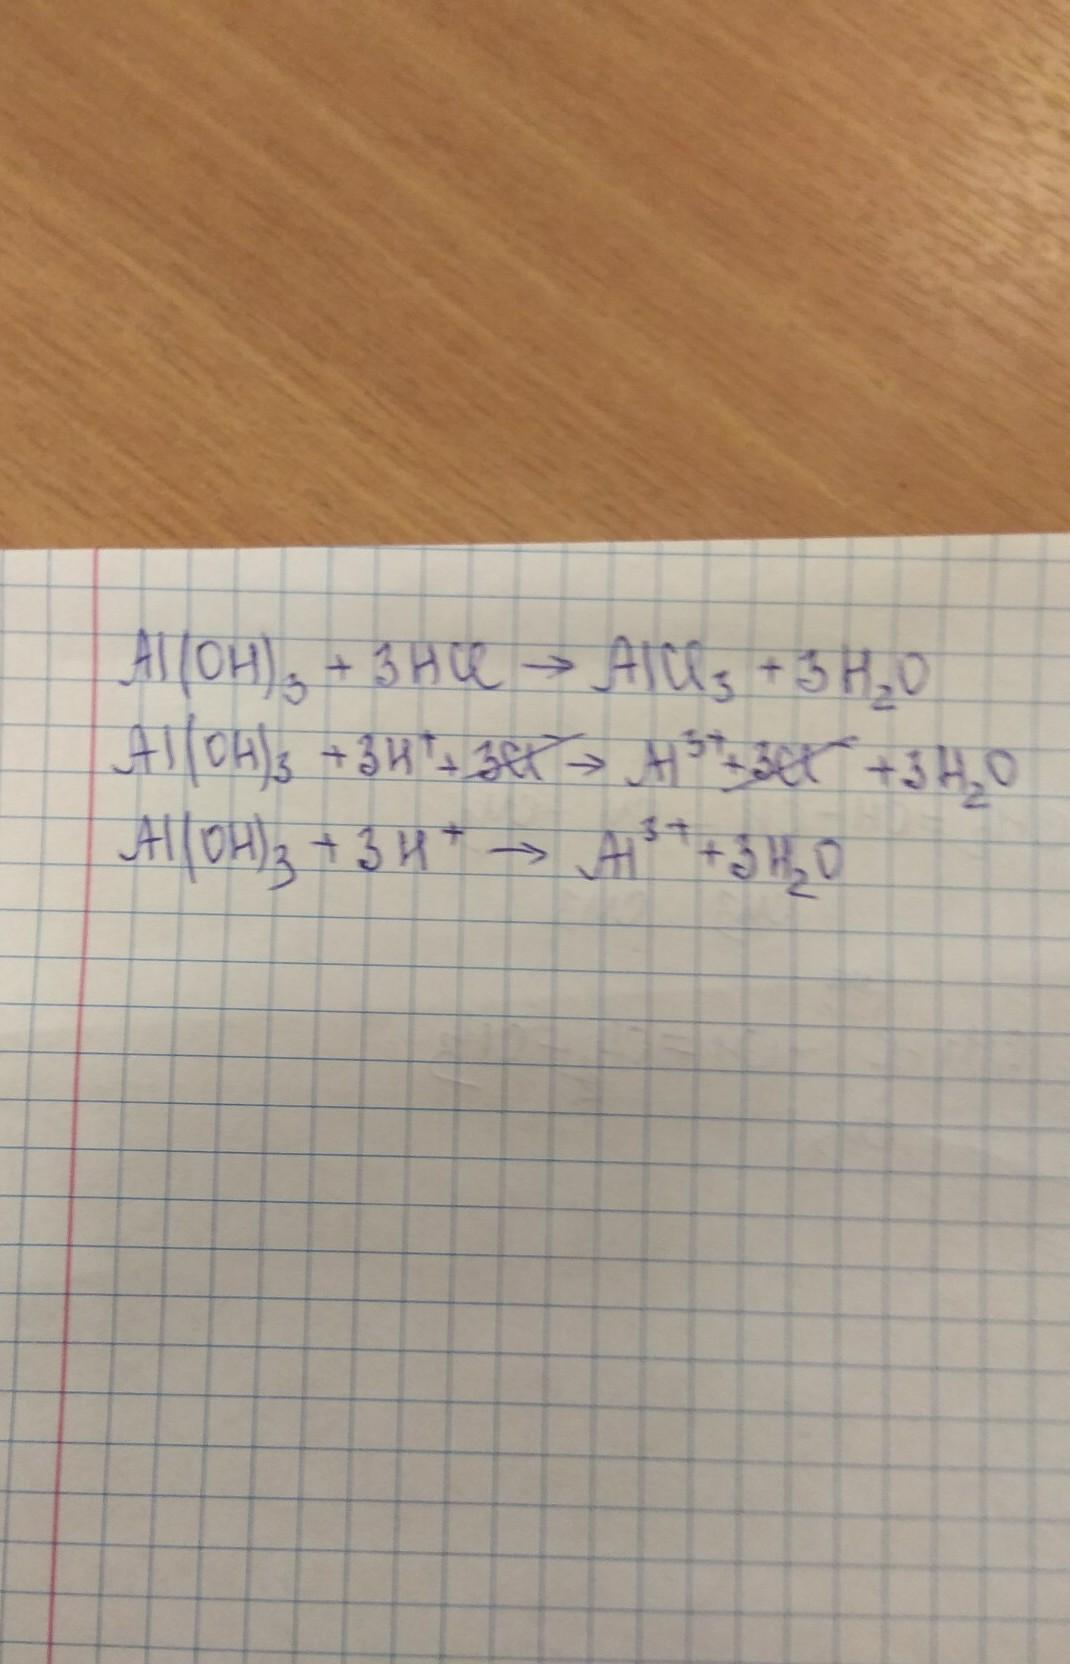 Al(OH)₃ + 3HCl → AlCl₃ + 3H₂O
Al(OH)₃ + 3H⁺ + 3Cl⁻ → Al³⁺ + 3Cl⁻ + 3H₂O
Al(OH)₃ + 3H⁺ → Al³⁺ + 3H₂O